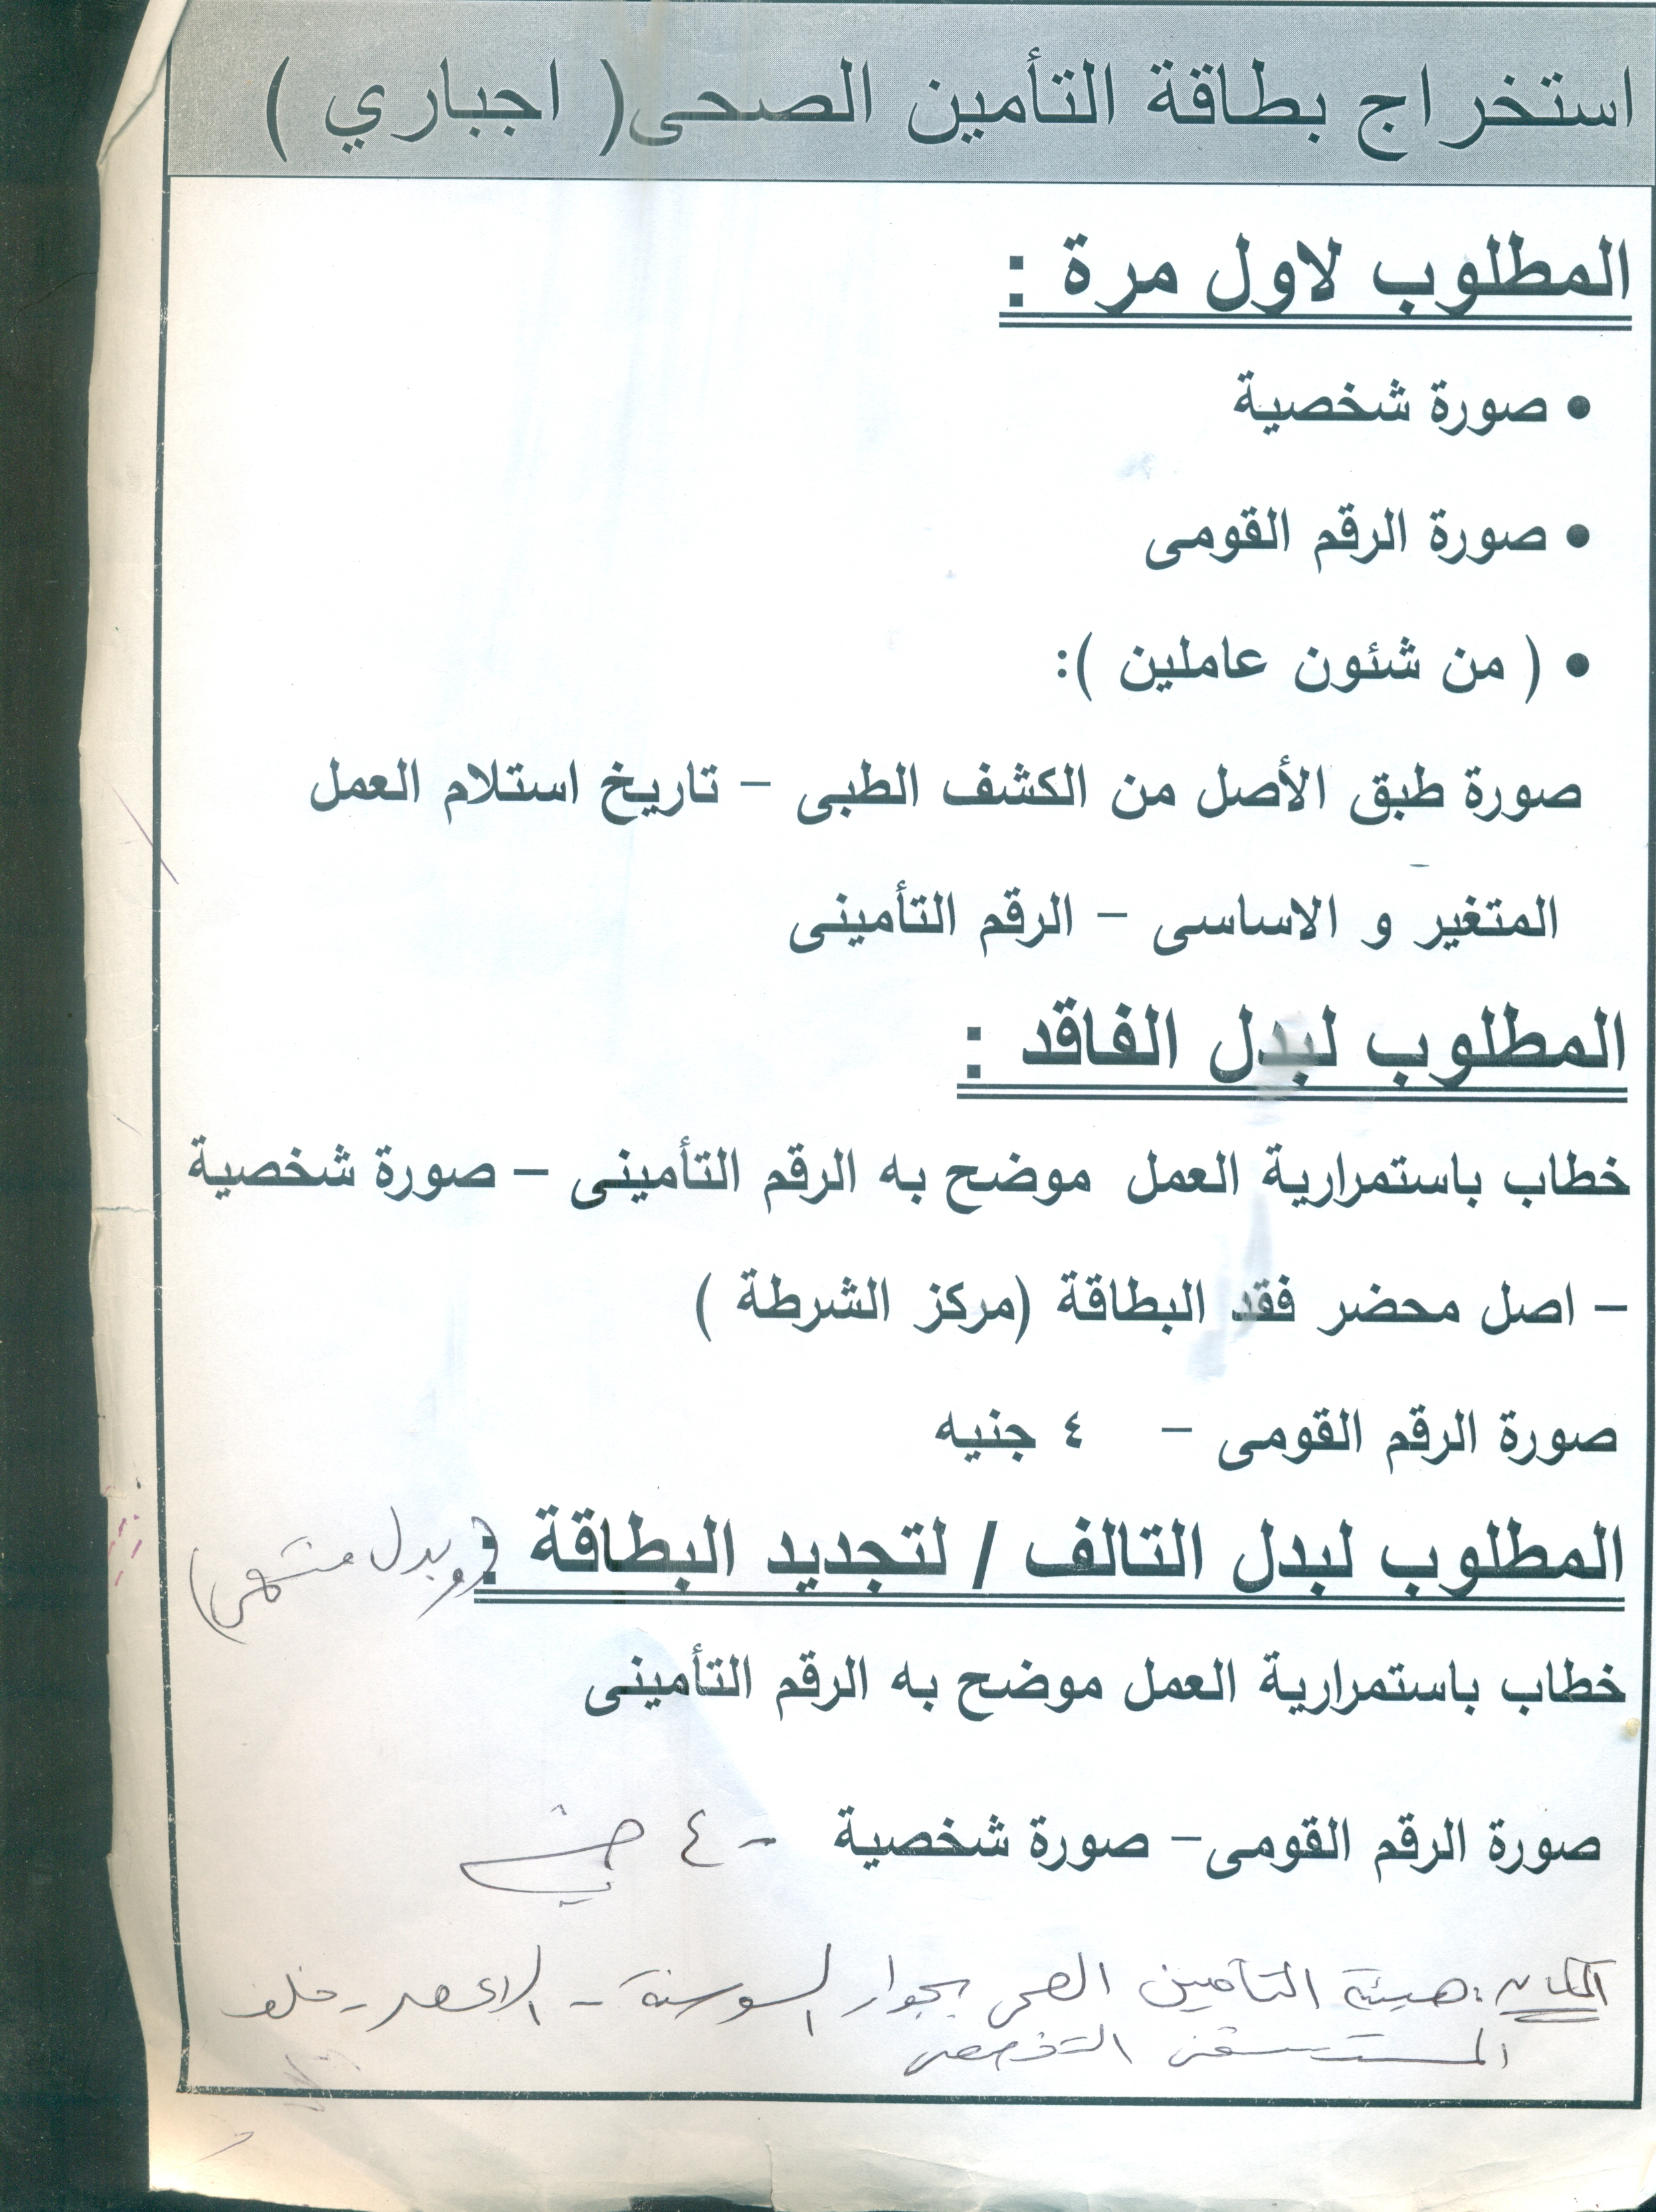 استخراج بطاقة التأمين الصحى( اجباري )
المطلوب لاول مرة :
• صورة شخصية
• صورة الرقم القومى
• ( من شئون عاملين ):
صورة طبق الأصل من الكشف الطبى – تاريخ استلام العمل
المتغير و الاساسى – الرقم التأمينى
المطلوب لبدل الفاقد :
خطاب باستمرارية العمل موضح به الرقم التأمينى – صورة شخصية
– اصل محضر فقد البطاقة (مركز الشرطة )
صورة الرقم القومى – ٤ جنيه
المطلوب لبدل التالف / لتجديد البطاقة : (وبدل منتهى)
خطاب باستمرارية العمل موضح به الرقم التأمينى
صورة الرقم القومى– صورة شخصية - ٤
المكان : هيئة التأمين الصحى بجوار السوسنة - - خلف
المستشفى التخصصى